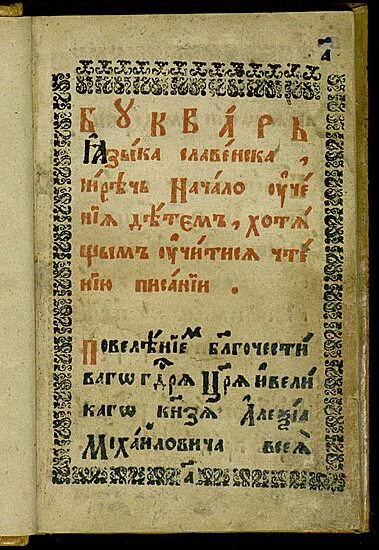 а҃
БУКВА́РЬ
Ꙗ҆зы́ка славе́нска,
си́рѣчь Нача́ло ᲂу҆че́
нїѧ дѣ́темъ, хотѧ́
щымъ ᲂу҆чи́тисѧ чте́
нїю писа́нїй.
Повелѣ́нїемъ бл҃гочести́
вагѡ гдⷭ҇рѧ Цр҃ѧ̀ и҆ вели́
кагѡ кн҃зѧ А҆леѯі́а
Мїха́йловича всеѧ̀
а҃